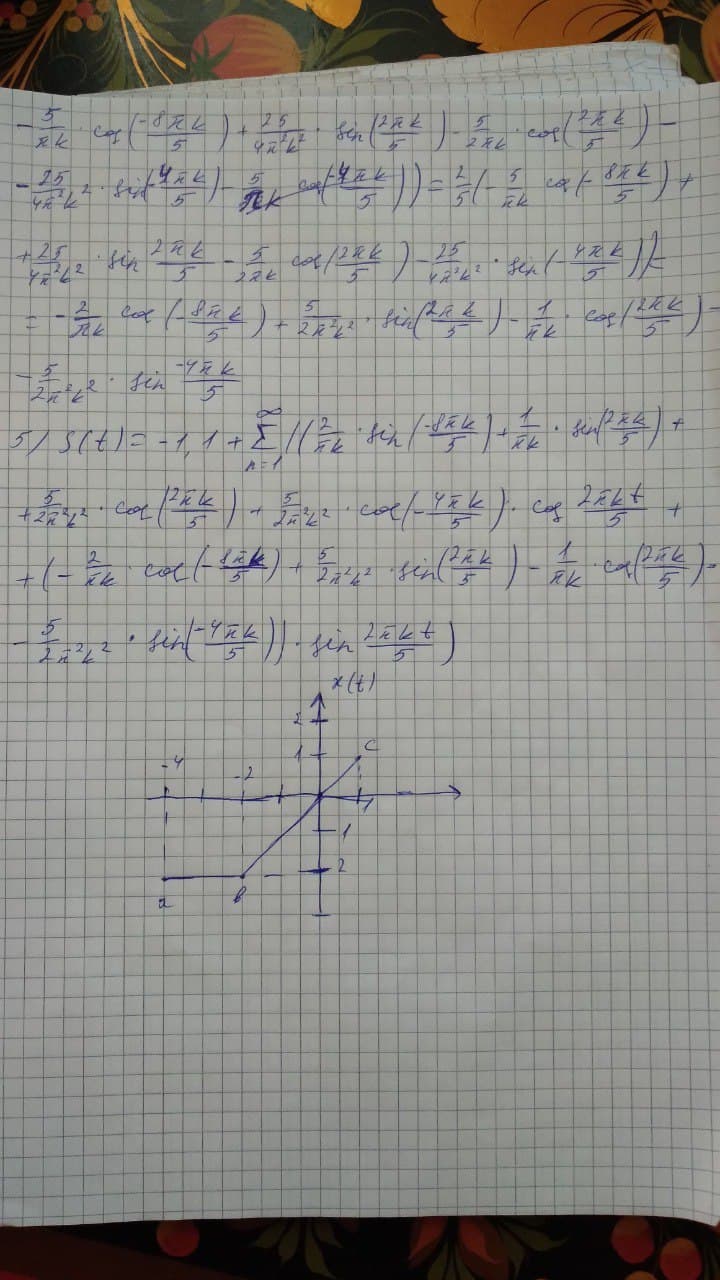 - 5/πk · cos(-8πk/5) + 25/4π²k² · sin(2πk/5) - 5/2πk · cos(2πk/5) -
- 25/4π²k² · sin(-4πk/5) - 5/πk cos(-4πk/5)) = 2/5(- 5/πk cos(- 8πk/5) +
+ 25/4π²k² · sin 2πk/5 - 5/2πk cos(2πk/5) - 25/4π²k² · sin(- 4πk/5)) =
= - 2/πk cos(- 8πk/5) + 5/2π²k² · sin(2πk/5) - 1/πk · cos(2πk/5) -
- 5/2π²k² · sin -4πk/5
5/ S(t) = -1,1 + ∞Σn=1 ((2/πk · sin(-8πk/5) + 1/πk · sin(2πk/5) +
+ 5/2π²k² · cos(2πk/5) + 5/2π²k² · cos(- 4πk/5) · cos 2πkt/5 +
+ (- 2/πk · cos(- 8πk/5) + 5/2π²k² · sin(2πk/5) - 1/πk · cos(2πk/5) -
- 5/2π²k² · sin(-4πk/5)) · sin 2πkt/5)
x(t)
2
1 C
-4 -2
1
1
2
a B